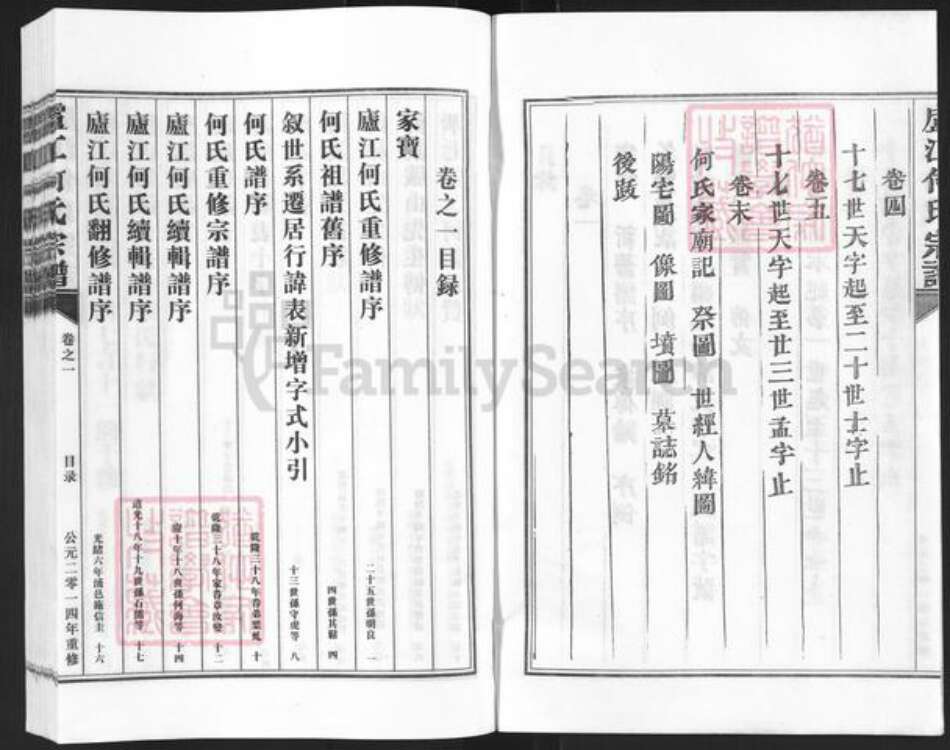 廬江何氏宗譜
卷四
十七世天字起至二十世士字止
卷五
十七世天字起至廿三世孟字止
卷末
何氏家廟記 祭圖 世經人緯圖
陽宅圖 像圖 墳圖 墓誌銘
後跋
卷之一目録
家寶
廬江何氏重修譜序 二十五世孫明良 一
何氏祖譜舊序 四世孫其 四
叙世系遷居行諱表新增字式小引 十三世孫守虎等 八
何氏譜序 乾隆三十八年眷弟 十
何氏重修宗譜序 乾隆三十八年家眷章汝 十二
廬江何氏續輯譜序 十年十八世孫何海等 十四
廬江何氏續輯譜序 道光十八年十九世孫石 等 十七
廬江何氏翻修譜序 光緒六年 邑施信圭 十六
廬江何氏宗譜 卷之一 目录 公元二零一四年重修
FamilySearch